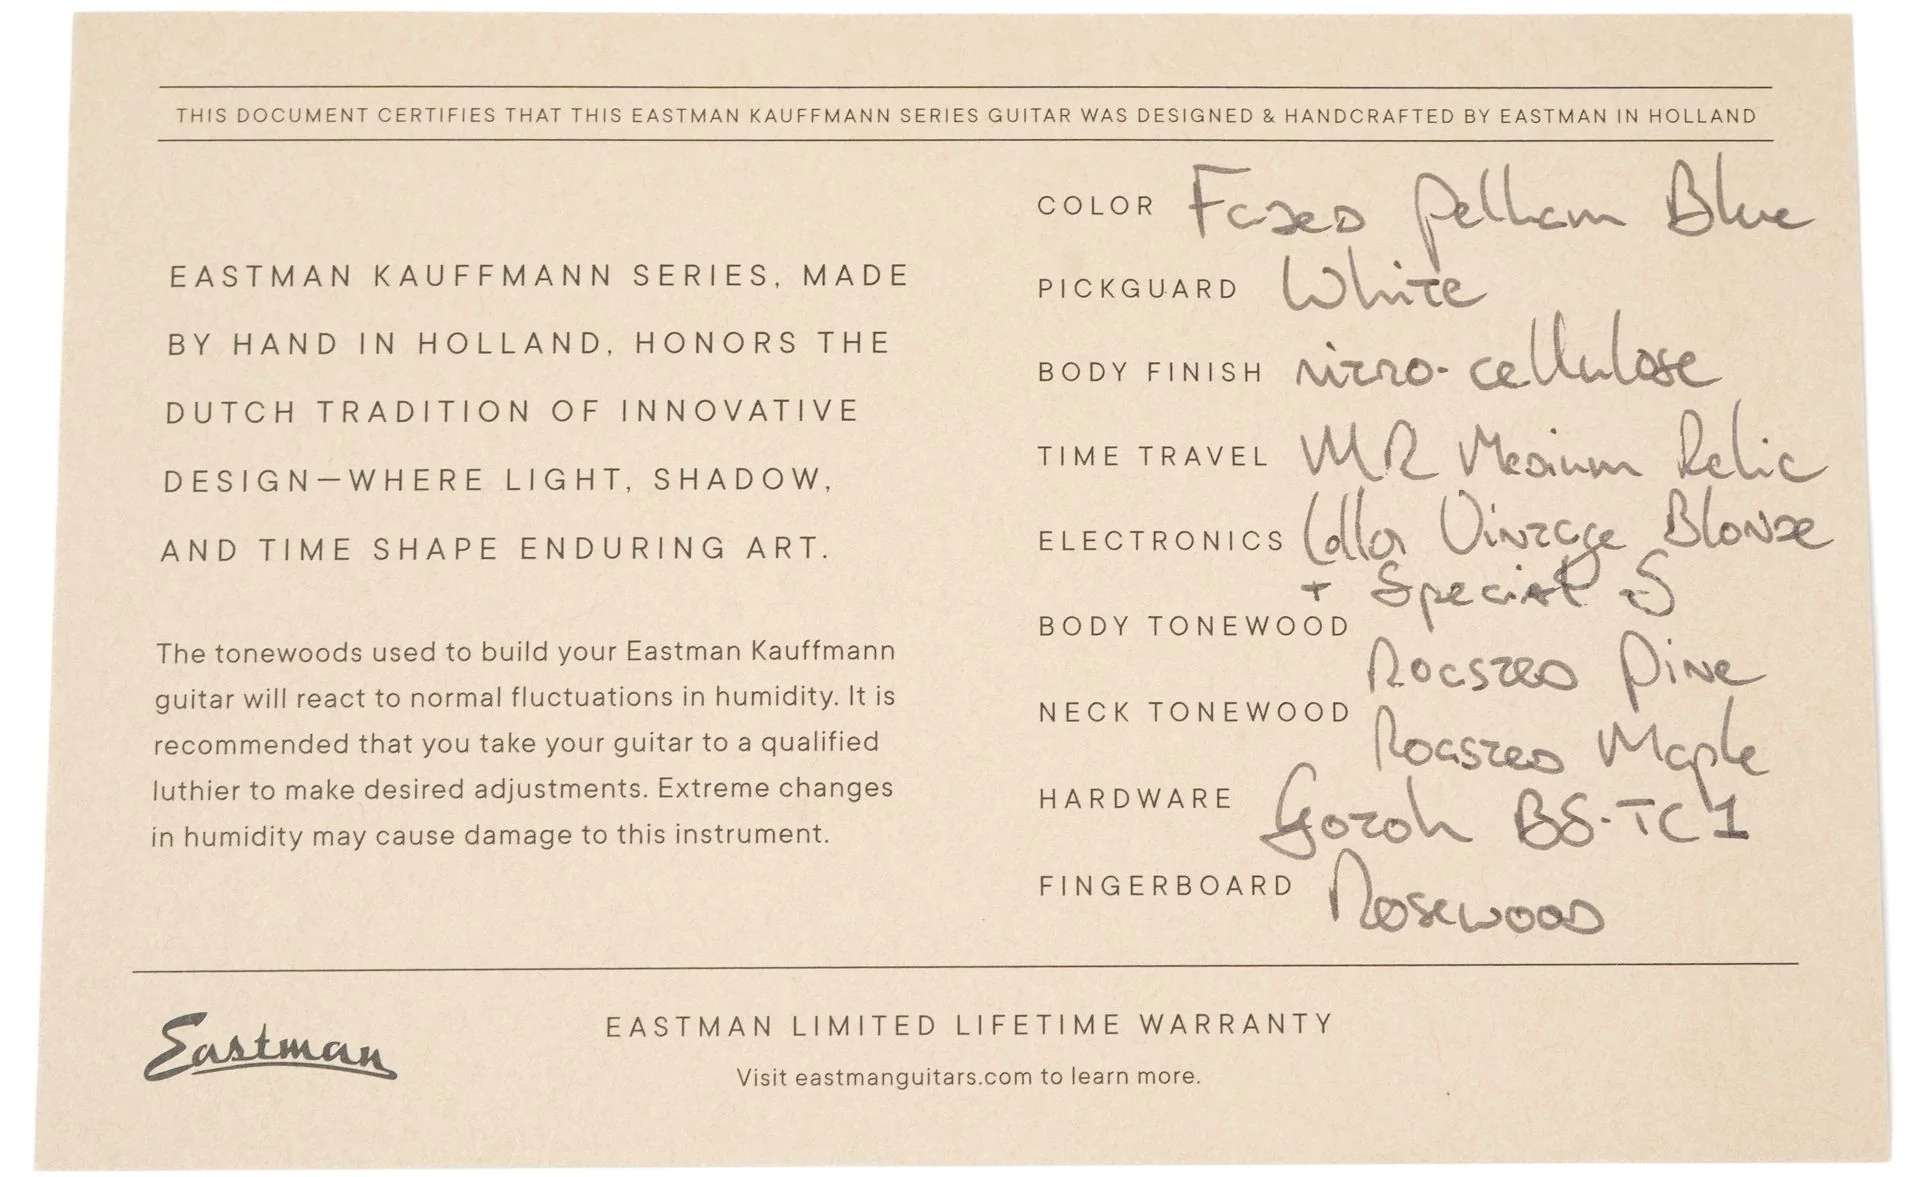 THIS DOCUMENT CERTIFIES THAT THIS EASTMAN KAUFFMANN SERIES GUITAR WAS DESIGNED & HANDCRAFTED BY EASTMAN IN HOLLAND
EASTMAN KAUFFMANN SERIES, MADE
BY HAND IN HOLLAND, HONORS THE
DUTCH TRADITION OF INNOVATIVE
DESIGN—WHERE LIGHT, SHADOW,
AND TIME SHAPE ENDURING ART.
The tonewoods used to build your Eastman Kauffmann
guitar will react to normal fluctuations in humidity. It is
recommended that you take your guitar to a qualified
luthier to make desired adjustments. Extreme changes
in humidity may cause damage to this instrument.
COLOR Faded Pelham Blue
PICKGUARD White
BODY FINISH nitro-cellulose
TIME TRAVEL MR Medium Relic
ELECTRONICS Lollar Vintage Blonde
+ Special S
BODY TONEWOOD Roasted Pine
NECK TONEWOOD Roasted Maple
HARDWARE Gotoh BS-TC1
FINGERBOARD Rosewood
Eastman
EASTMAN LIMITED LIFETIME WARRANTY
Visit eastmanguitars.com to learn more.